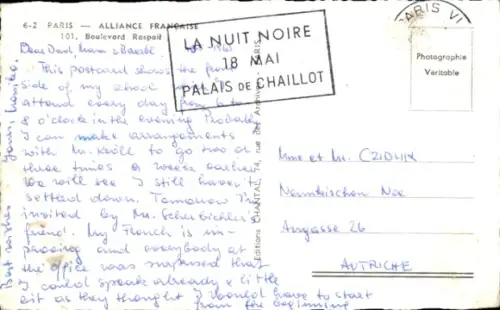 6-2 PARIS — ALLIANCE FRANÇAISE
101, Boulevard Raspail
Dear Dad, Mum & 
This postcard shows the front
side of my school
attend every day from 6 to
8 o'clock in the evening Probably
I can make arrangements
with Mr. to go two or
three times a week earlier
We will see I still haven't
settled down. Tomorrow I'm
invited by Mr. 
friend. My French is im-
proving and everybody at
the office was surprised that
I could speak already a little
bit as they thought I would have to start
from the beginning
Best wishes Yours,
LA NUIT NOIRE
18 MAI
PALAIS DE CHAILLOT
PARIS VI
Photographie
Véritable
Editions CHANTAL, 74, rue des Archives - PARIS
Mme et Mr. CZIDLIK
Neunkirchen Noe
Augasse 26
AUTRICHE